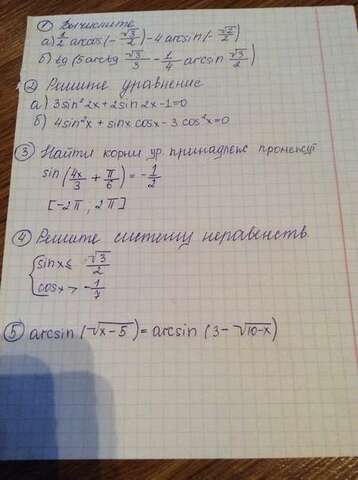 ① Вычислите
а) 1/2 arccos(-√3/2) - 4 arcsin(-√2/2)
б) tg (5 arctg √3/3 - 1/4 arcsin √3/2)
② Решите уравнение
а) 3sin²2x + 2sin2x - 1 = 0
б) 4sin²x + sinx cosx - 3cos²x = 0
③ Найти корни ур. принадлеж промежут
sin(4x/3 + π/6) = -1/2
[-2π, 2π]
④ Решите систему неравенств
{ sinx ≤ √3/2
cosx > -1/7
⑤ arcsin(√x-5) = arcsin(3 - √10-x)